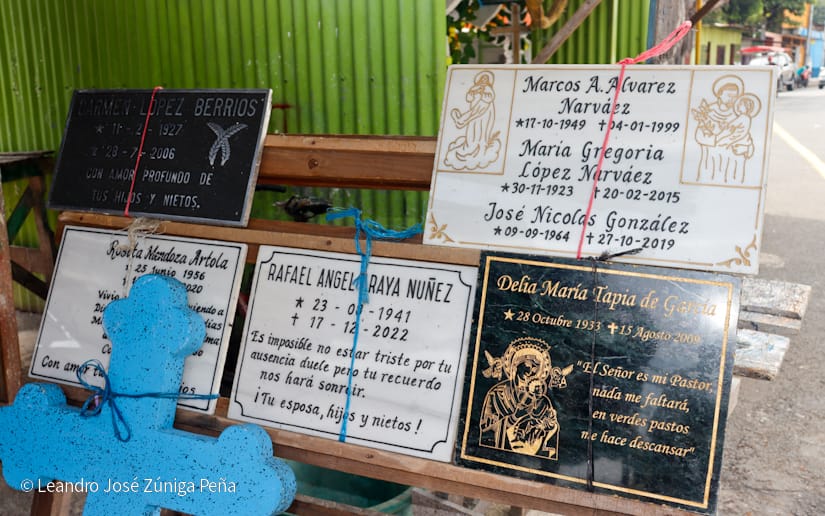 CARMEN LÓPEZ BERRIOS
1927
2006
CON AMOR PROFUNDO DE
TUS HIJOS Y NIETOS.
Marcos A. Alvarez
Narváez
★17-10-1949 ✝04-01-1999
Maria Gregoria
López Narváez
★30-11-1923 ✝20-02-2015
José Nicolas González
★09-09-1964 ✝27-10-2019
Rosita Mendoza Artola
25 Junio 1956
2020
Con amor
RAFAEL ANGEL ARAYA NUÑEZ
★ 23-08-1941
✝ 17-12-2022
Es imposible no estar triste por tu
ausencia duele pero tu recuerdo
nos hará sonreir.
¡Tu esposa, hijos y nietos!
Delia María Tapia de García
★28 Octubre 1933 ✝15 Agosto 2009
"El Señor es mi Pastor,
nada me faltará,
en verdes pastos
me hace descansar"
© Leandro José Zúniga Peña